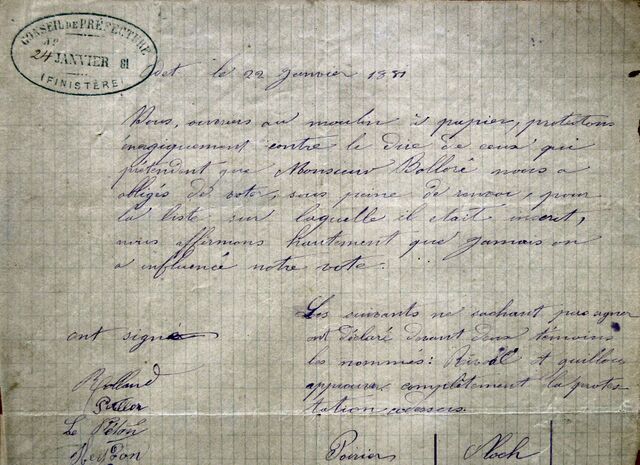 CONSEIL DE PRÉFECTURE
24 JANVIER 81
(FINISTÈRE)
Odet le 22 Janvier 1881
Nous, ouvriers au moulin à papier, protestons
énergiquement contre le dire de ceux qui
prétendent que Monsieur Bolloré nous a
obligés de voter, sous peine de renvoi, pour
la liste sur laquelle il était inscrit,
nous affirmons hautement que jamais on
a influencé notre vote.
ont signé
Les suivants ne sachant pas signer
ont déclaré devant deux témoins
les nommés: et quillou
approuver complètement la protes-
tation ci-dessus
Rolland
Le
Poirier